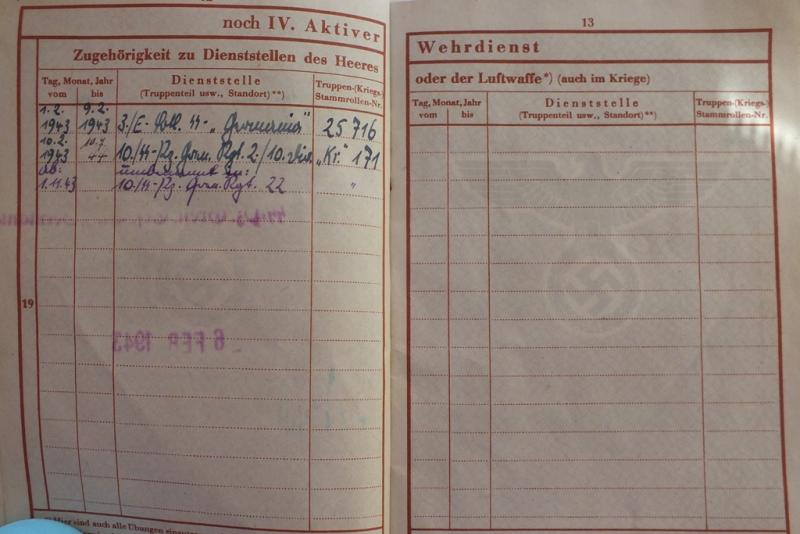 noch IV. Aktiver
Zugehörigkeit zu Dienststellen des Heeres
Tag, Monat, Jahr
vom bis
Dienststelle
(Truppenteil usw., Standort)**)
Truppen-(Kriegs-)
Stammrollen-Nr.
1.2. 9.2.
1943 1943 3./E- Btl. SS- „Germania" 25 716
10.2.
1943 10./SS-Pz. Gren. Rgt. 2./10. Div. „Kr." 171
ab: umbenannt in:
1.11.43 10./SS-Pz. Gren. Rgt. 22 "
19
6 FEB 1943
*) Hier sind auch alle Übungen
13
Wehrdienst
oder der Luftwaffe*) (auch im Kriege)
Tag, Monat, Jahr
vom bis
Dienststelle
(Truppenteil usw., Standort)**)
Truppen-(Kriegs-)
Stammrollen-Nr.